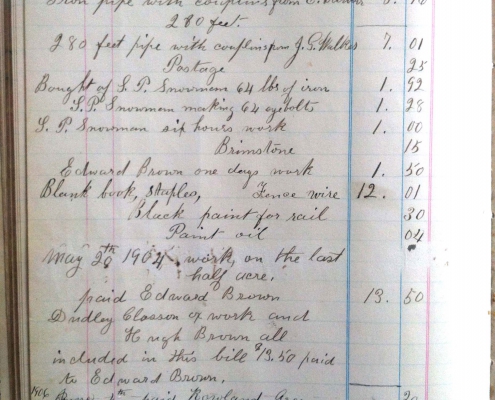 Iron pipe with couplins from E.
280 feet.
280 feet pipe with couplins from J. G. Walker 7. 01
Postage 25
Bought of S. P. Snowman 64 lbs of iron 1. 92
S. P. Snowman making 64 eyebolts 1. 28
S. P. Snowman six hours work 1. 00
Brimstone 15
Edward Brown one days work 1. 50
Blank book, staples, Fence wire 12. 01
Black paint for rail 30
Paint oil 04
May 29th 1904 work on the last
half acre.
paid Edward Brown 13. 50
Dudley Closson ox work and
Hugh Brown all
included in this bill $13.50 paid
to Edward Brown.
1906 paid Rowland 20